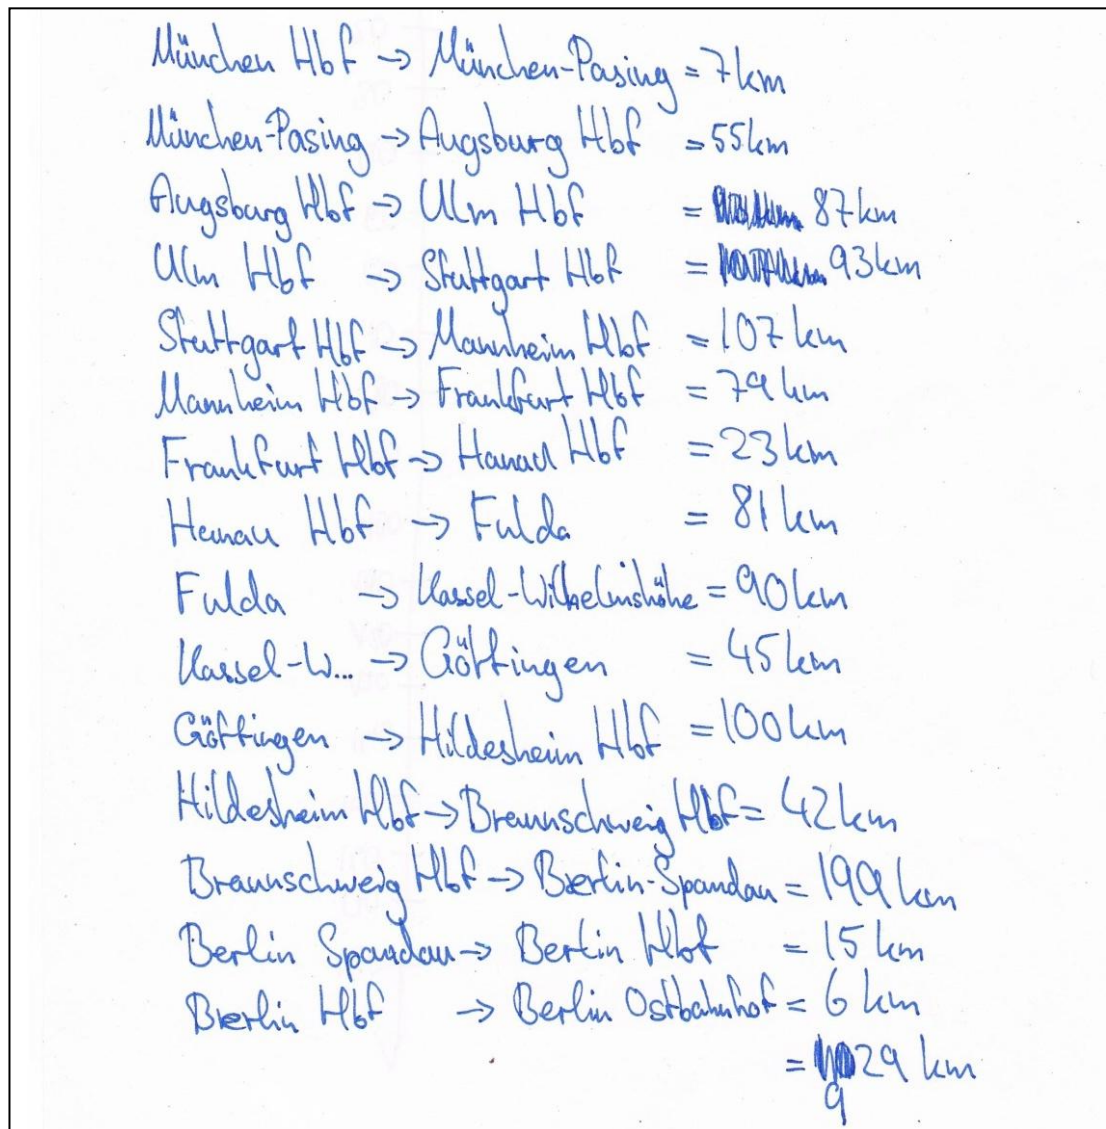 München Hbf → München-Pasing = 7km
München-Pasing → Augsburg Hbf = 55km
Augsburg Hbf → Ulm Hbf = 87km
Ulm Hbf → Stuttgart Hbf = 93km
Stuttgart Hbf → Mannheim Hbf = 107 km
Mannheim Hbf → Frankfurt Hbf = 79 km
Frankfurt Hbf → Hanau Hbf = 23 km
Hanau Hbf → Fulda = 81 km
Fulda → Kassel-Wilhelmshöhe = 90 km
Kassel-W... → Göttingen = 45 km
Göttingen → Hildesheim Hbf = 100 km
Hildesheim Hbf → Braunschweig Hbf = 42 km
Braunschweig Hbf → Berlin-Spandau = 199 km
Berlin Spandau → Berlin Hbf = 15 km
Berlin Hbf → Berlin Ostbahnhof = 6 km
= 29 km
9